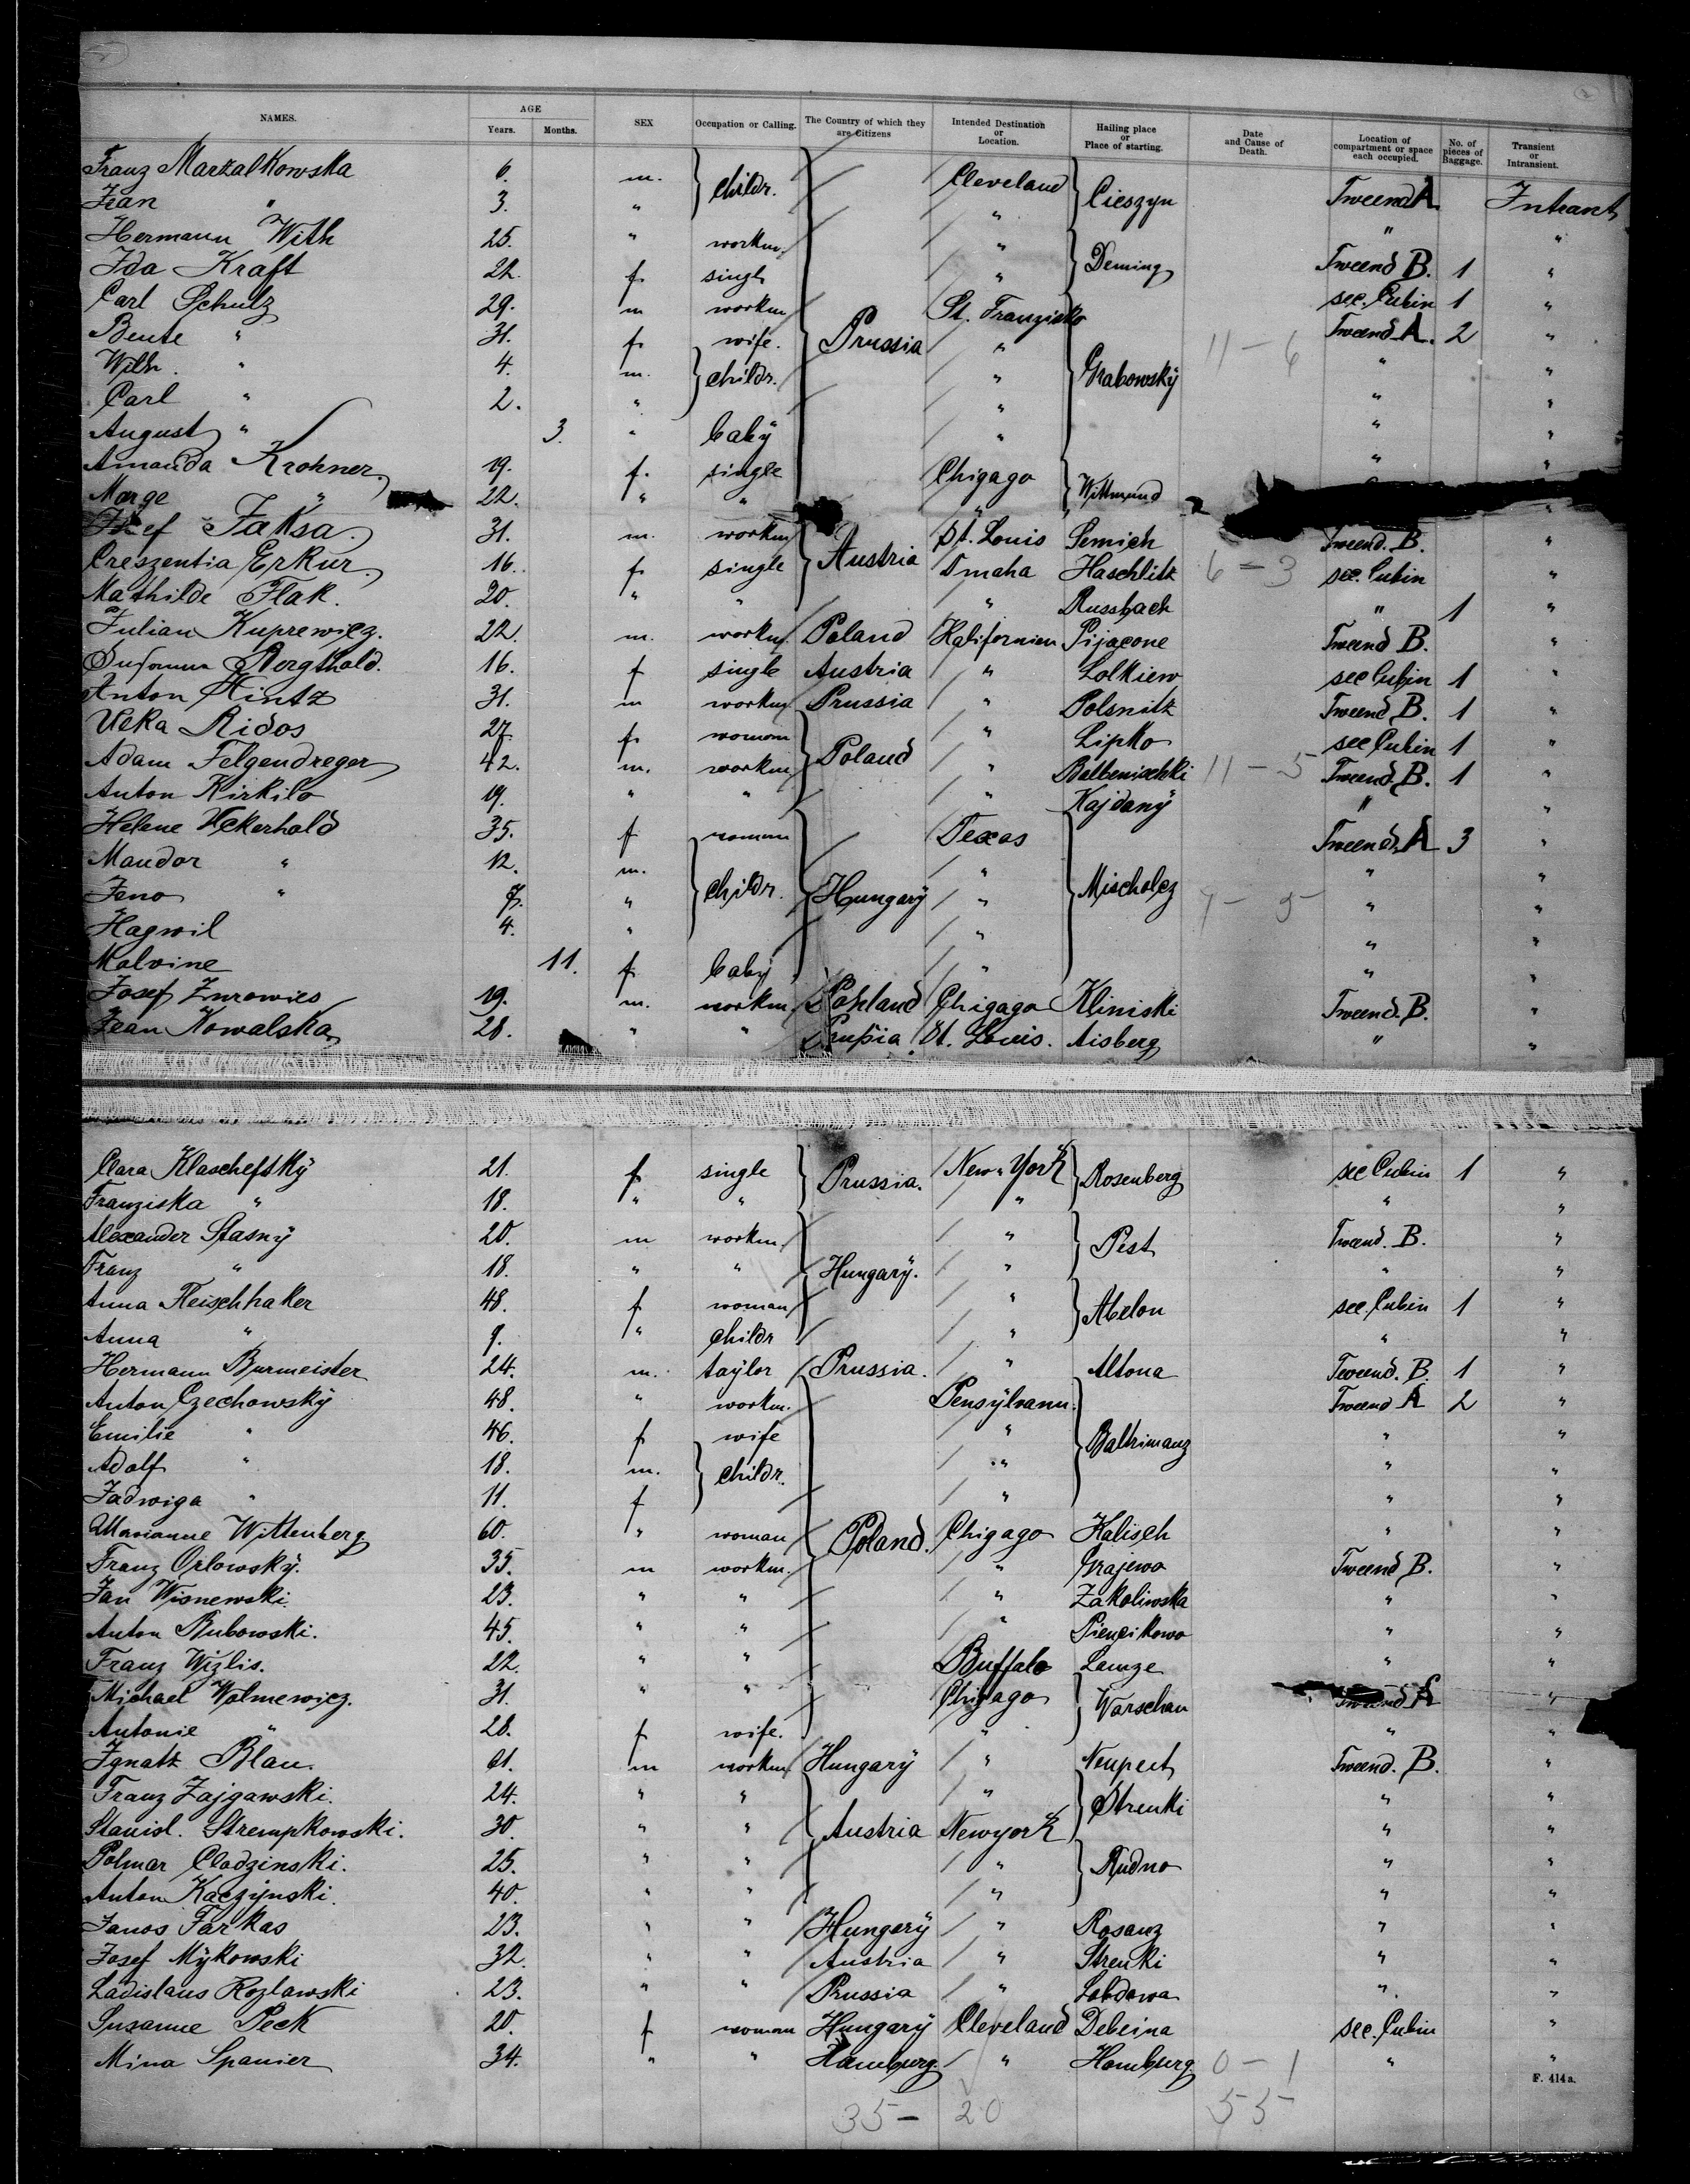 NAMES. AGE Years. Months. SEX Occupation or Calling. The Country of which they are Citizens Intended Destination or Location. Hailing place or Place of starting. Date and Cause of Death. Location of compartment or space each occupied. No. of pieces of Baggage. Transient or Intransient.
Franz Markalkowska 6. m. } childr. Cleveland } Cieszyn Tweend A. Intrant
Jean " 3. " " " "
Hermann With 25. " workm. " } Deming Tweend B. 1 "
Ida Kraft 22. f. single " sec. Cubin 1 "
Carl Schulz 29. m workm St. Franzisko Tweend A. 2 "
Beute " 31. f. wife. } Prussia " } Grabowsky 11 - 6 " "
Wilh. " 4. m. } childr. " " "
Carl " 2. " " " "
August " 3. " baby " " "
Amanda Krohner 19. f. single Chigago } Wittmund
Marge " 22. " " " "
Josef Jaksa. 31. m. workm } Austria St. Louis Semich Tweend. B. "
Creszentia Erkur. 16. f. single Omaha Haschlitz 6 - 3 sec. Cubin "
Mathilde Flak. 20. " " " Russbach " 1 "
Julian Kuprewicz. 22. m. workm. Poland Kalifornien Pijacone Tweend B. "
Susanna Bergthold. 16. f single Austria " Lolkiew sec Cubin 1 "
Anton Hintz 31. m workm Prussia " Polsnitz Tweend B. 1 "
Ulka Ridos 27. f. woman } Poland " Lipko sec Cubin 1 "
Adam Felgendreger 42. m. workm " Balbenischki 11 - 5 Tweend B. 1 "
Anton Kirkilo 19. " " " Kajdany " "
Helene Uckerhald 35. f woman } Hungary Texas } Mischolcz Tweend. A 3 "
Mandor " 12. m. } childr. " " "
Jeno " 7. " " 7 - 5 " "
Hagwil 4. " " " "
Malvine 11. f. baby " " "
Josef Zurowies 19. m. workm. Pohland Chigago Kliniski Tweend. B. "
Jean Kowalska 28. " " Prussia St. Louis. Aisberg " "
Clara Klaschefsky 21. f single } Prussia. New-York } Rosenberg sec Cubin 1 "
Franziska " 18. " " " " "
Alexander Stasny 20. m workm. } Hungary. " } Pest Tweend. B. "
Franz " 18. " " " " "
Anna Fleischhaker 48. f woman " } Abelon sec. Cubin 1 "
Anna " 9. " childr " " "
Hermann Burmeister 24. m. taylor Prussia. " Altona Tweend. B. 1 "
Anton Czechowsky 48. " workm. } Poland. Pensylvann. } Baltrimanz Tweend A 2 "
Emilie " 46. f wife " " "
Adolf " 18. m. } childr. " " "
Jadwiga " 11. f " " "
Marianne Wittenberg 60. " woman Chigago Kalisch " "
Franz Orlowsky. 35. m workm. " Grajewo Tweend B. "
Jan Wisnewski. 23. " " " Zakoliwska " "
Anton Bubowski. 45. " " " Piencikowo " "
Franz Wizlis. 22. " " Buffalo Lamze " "
Michael Wolmewicz. 31. " " Chigago } Warschau Tweend A "
Antonie " 28. f wife. " " "
Ignatz Blau. 61. m workm. Hungary " Neupest Tweend. B. "
Franz Zajgawski. 24. " " } Austria " } Strenki " "
Stanisl. Strempkowski. 30. " " Newyork " "
Polmar Clodzinski. 25. " " " } Rudno " "
Anton Kaczynski. 40. " " " " "
Janos Farkas 23. " " Hungery " Rosanz " "
Josef Mykowski 32. " " Austria " Strenki " "
Ladislaus Kozlawski 23. " " Prussia " Lobdowa " "
Susanne Peck 20. f woman Hungary Cleveland Debeina sec. Cubin "
Mina Spanier 34. " " Hamburg " Hamburg. 0 - 1 " "
F. 414 a.
35 - 20 55